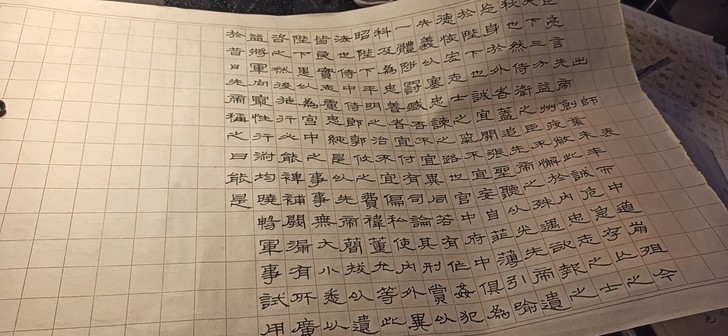 出師表
臣亮言先帝創業未半而中道崩殂今
天下三分益州疲敝此誠危急存亡之
秋也然侍衛之臣不懈於內忠志之士
忘身於外者蓋追先帝之殊遇欲報之
於陛下也誠宜開張聖聽以光先帝遺
德恢宏志士之氣不宜妄自菲薄引喻
失義以塞忠諫之路也宮中府中俱為
一體陟罰臧否不宜異同若有作姦犯
科及為忠善者宜付有司論其刑賞以
昭陛下平明之治不宜偏私使內外異
法也侍中侍郎郭攸之費禕董允等此
皆良實志慮忠純是以先帝簡拔以遺
陛下愚以為宮中之事事無大小悉以
咨之然後施行必能裨補闕漏有所廣
益將軍向寵性行淑均曉暢軍事試用
於昔日先帝稱之曰能是